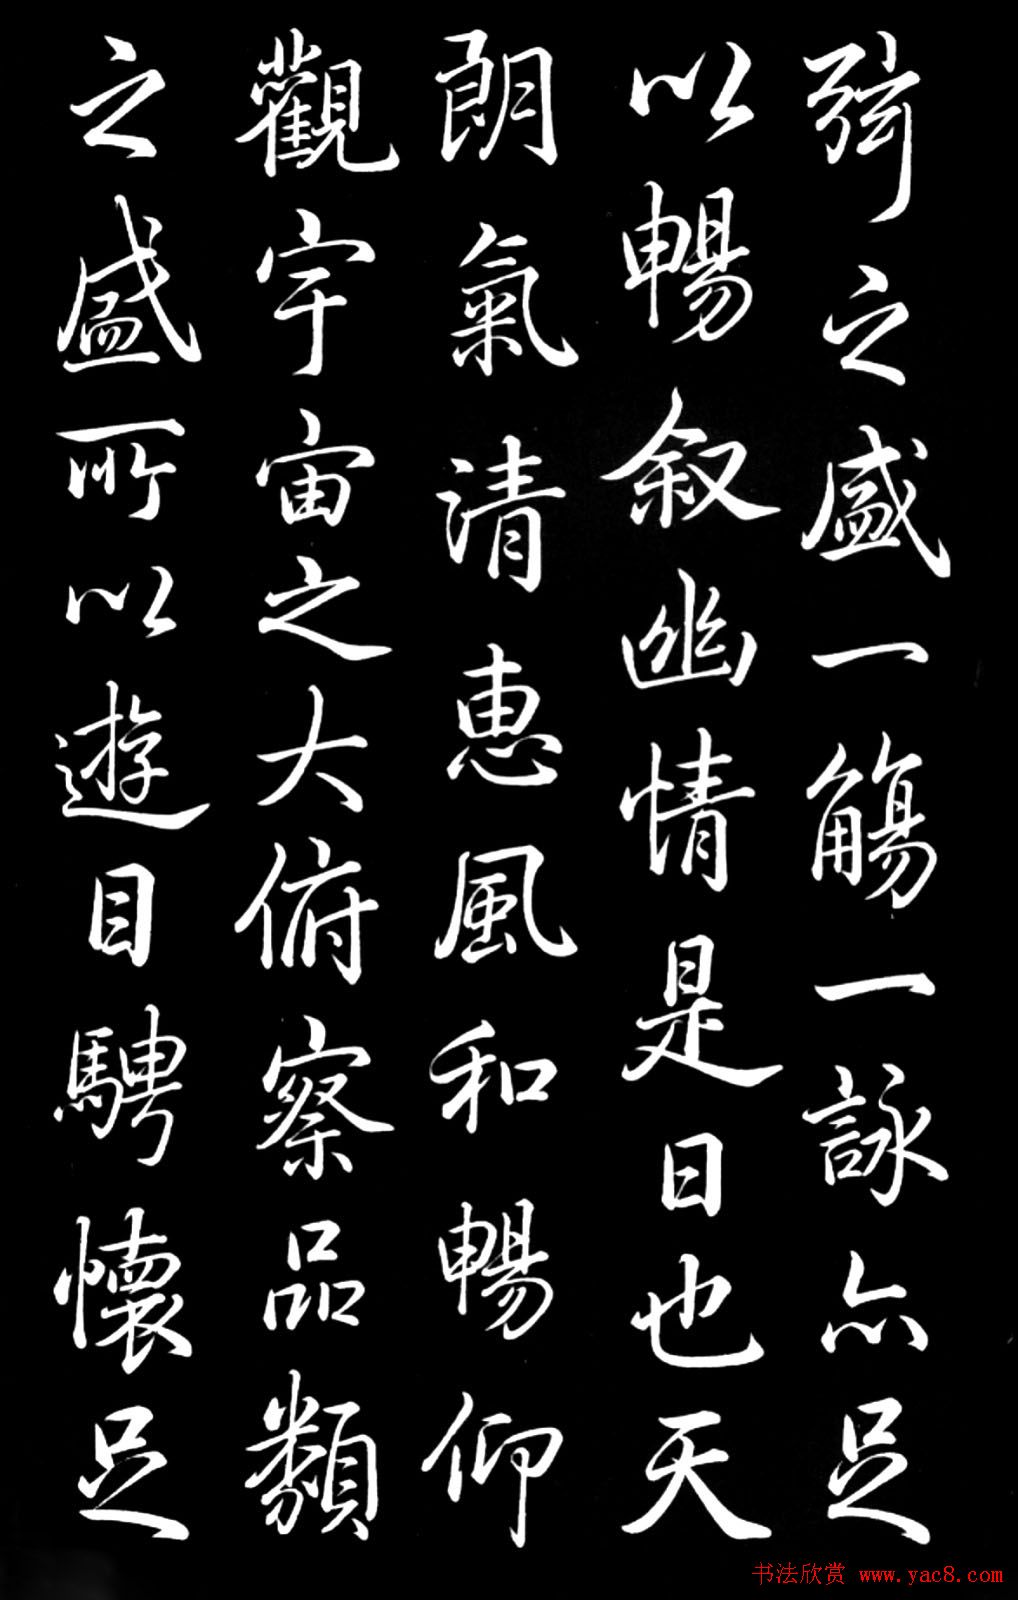 弦之盛一觴一詠亦足
以暢叙幽情是日也天
朗氣清惠風和暢仰
觀宇宙之大俯察品類
之盛所以遊目騁懷足
书法欣赏 www.yac8.com